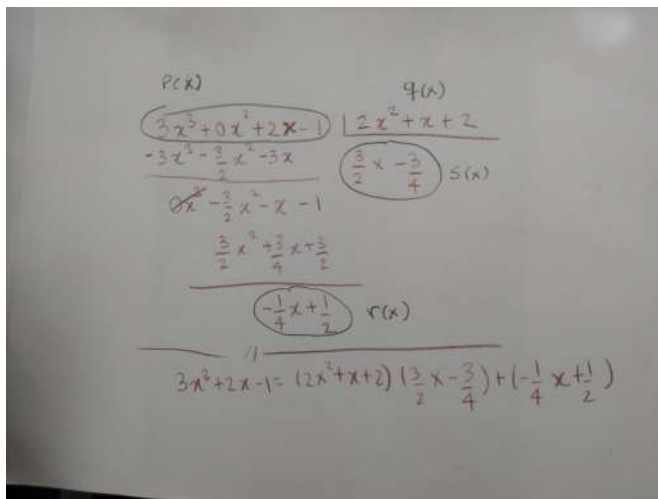 P(x) q(x)
3x³+0x²+2x-1 | 2x²+x+2
-3x³-3/2x²-3x 3/2x-3/4 S(x)
0x³-3/2x²-x-1
3/2x²+3/4x+3/2
-1/4x+1/2 r(x)
3x³+2x-1=(2x²+x+2)(3/2x-3/4)+(-1/4x+1/2)